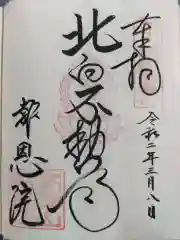 奉拝
令和二年三月八日
北向不動
報恩院